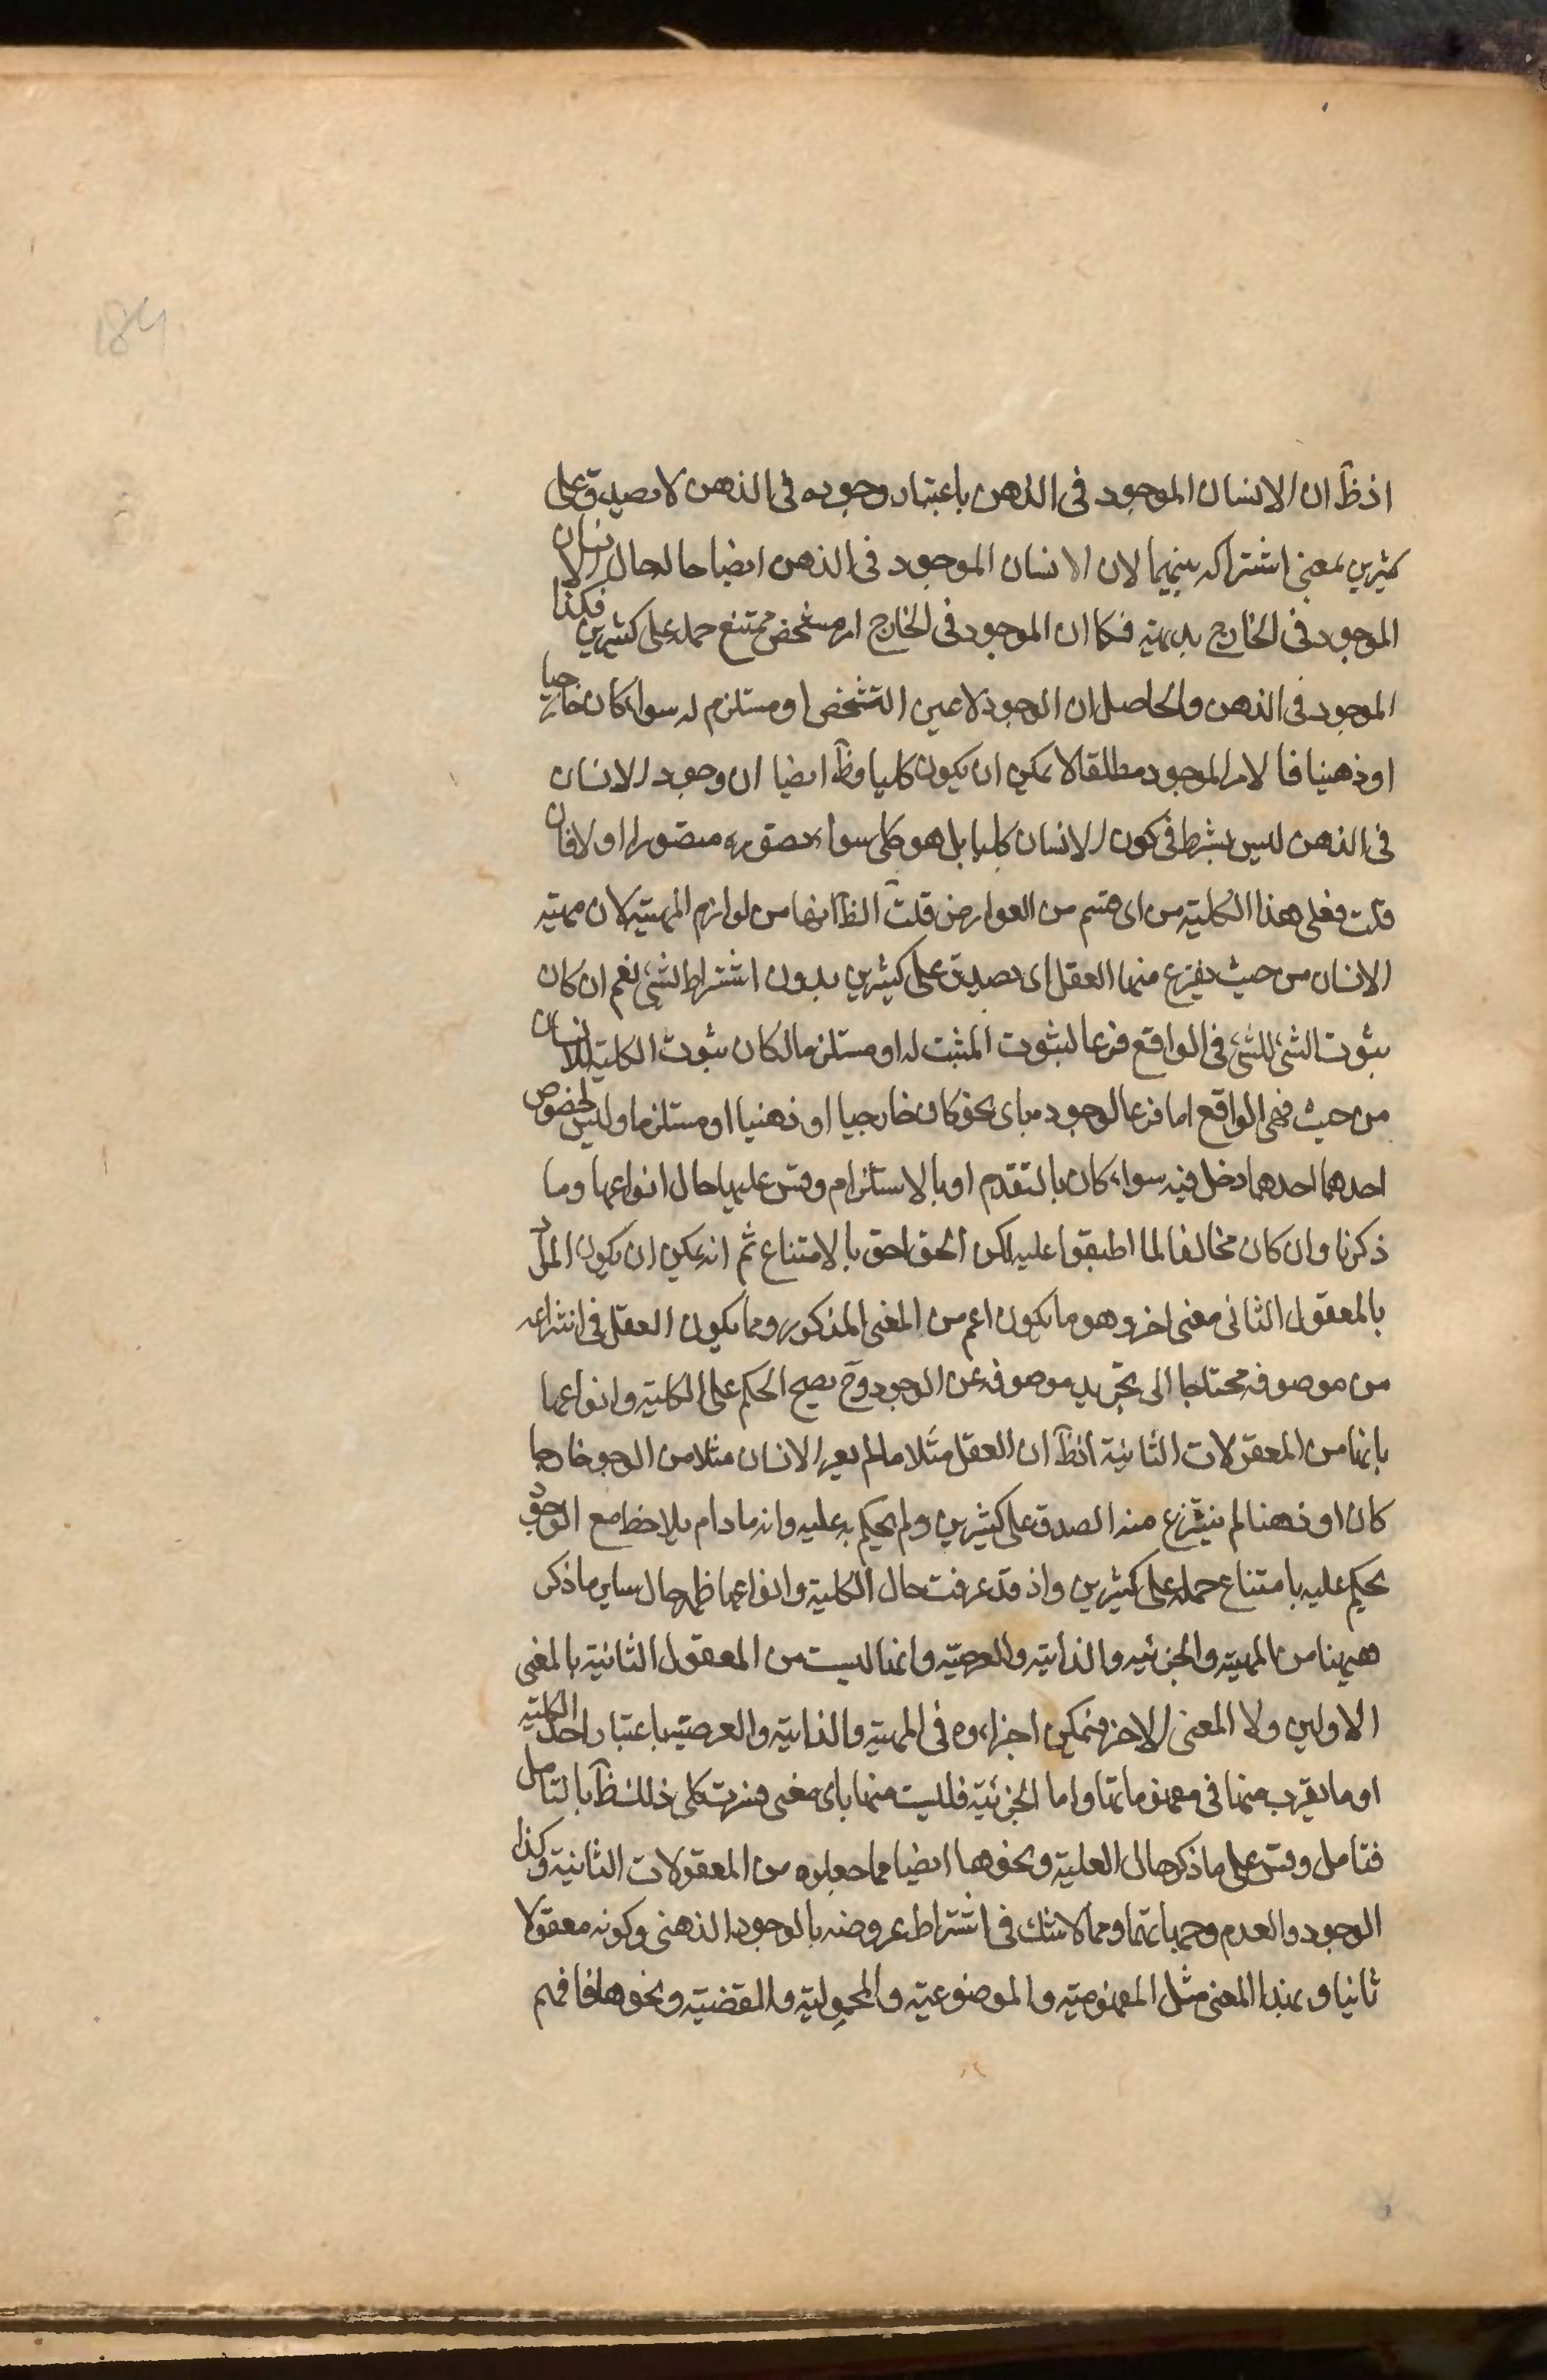 184
اذ ظَ ان الانسان الموجود فى الذهن باعتبار وجوده فى الذهن لا يصدق على
كثيرين بمعنى اشتراكه بينهما لان الانسان الموجود فى الذهن ايضا حاله حال الانسان
الموجود فى الخارج بديهية فكما ان الموجود فى الخارج امر مشخص ممتنع حمله على كثيرين فكذا
الموجود فى الذهن والحاصل ان الوجود لا عين التشخص او مستلزم له سواء كان خارجيا
او ذهنيا فالامر الموجود مطلقا لا يمكن ان يكون كليا وظَ ايضا ان وجود الانسان
فى الذهن ليس بشرط فى كون الانسان كليا بل هو كلى سواء تصوره متصور او لا فان
قلت فعلى هذا الكلية من اى قسم من العوارض قلت الظَ انها من لوازم المهية لان مهية
الانسان من حيث هى ينتزع منها العقل اى يصدق على كثيرين بدون اشتراط لشئ نعم ان كان
ثبوت الشئ للشئ فى الواقع فرعا لثبوت المثبت له او مستلزما لكان ثبوت الكلية للانسان
من حيث هى فى الواقع اما فرعا لوجود ما باى نحو كان خارجيا او ذهنيا او مستلزما وليس لخصوص
احدهما احدهما دخل فيه سواء كان بالتقدم او بالاستلزام وقس عليها حال انواعها وما
ذكرنا وان كان مخالفا لما اطبقوا عليه لكن الحق احق بالاتباع ثم انه يمكن ان يكون المراد
بالمعقول الثانى معنى اخر وهو ما يكون اعم من المعنى المذكور ومما يكون العقل فى انتزاعه
من موصوفه محتاجا الى تجريد موصوفه عن الوجود وحَ يصح الحكم على الكلية وانواعها
بانها من المعقولات الثانية اذ ظَ ان العقل مثلا ما لم يعر الانسان مثلا من الوجود خارجيا
كان او ذهنيا لم ينتزع منه الصدق على كثيرين ولم يحكم به عليه وانه ما دام يلاحظ مع الوجود
يحكم عليه بامتناع حمله على كثيرين واذ قد عرفت حال الكلية وانواعها ظهر حال ساير ما ذكر
هيهنا من المهية والجزئية والذاتية والعرضية وانها ليست من المعقول الثانية بالمعنى
الاولين ولا المعنى الاخر فيمكن اجزاءوه فى المهية والذاتية والعرضية باعتبار اخذ الكلية
او ما يقرب منها فى مفهوماتها واما الجزئية فليست منها باى معنى فسرت كل ذلك ظَ بالتامل
فتامل وقس على ما ذكر حال العلية ونحوها ايضا مما جعلوه من المعقولات الثانية وكذا
الوجود والعدم وجهاتهما ومما لا شك فى اشتراط عروضه بالوجود الذهنى وكونه معقولا
ثانيا وبهذا المعنى مثل المفهومية والموضوعية والمحمولية والقضية ونحوها فافهم